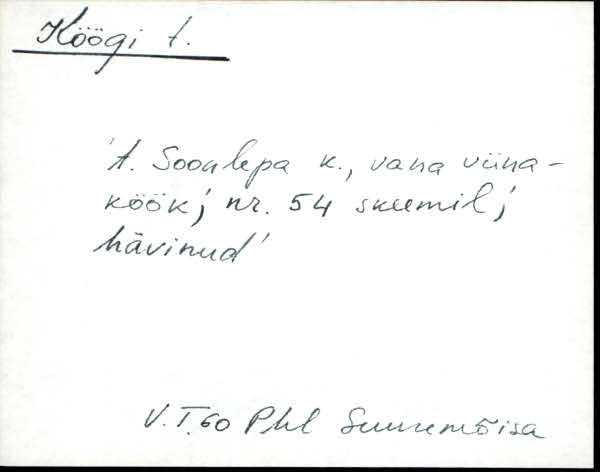 Köögi t.
't. Soonlepa k., vana viina-
köök; nr. 54 skeemil;
hävinud'
V.T.60 Phl Suuremõisa